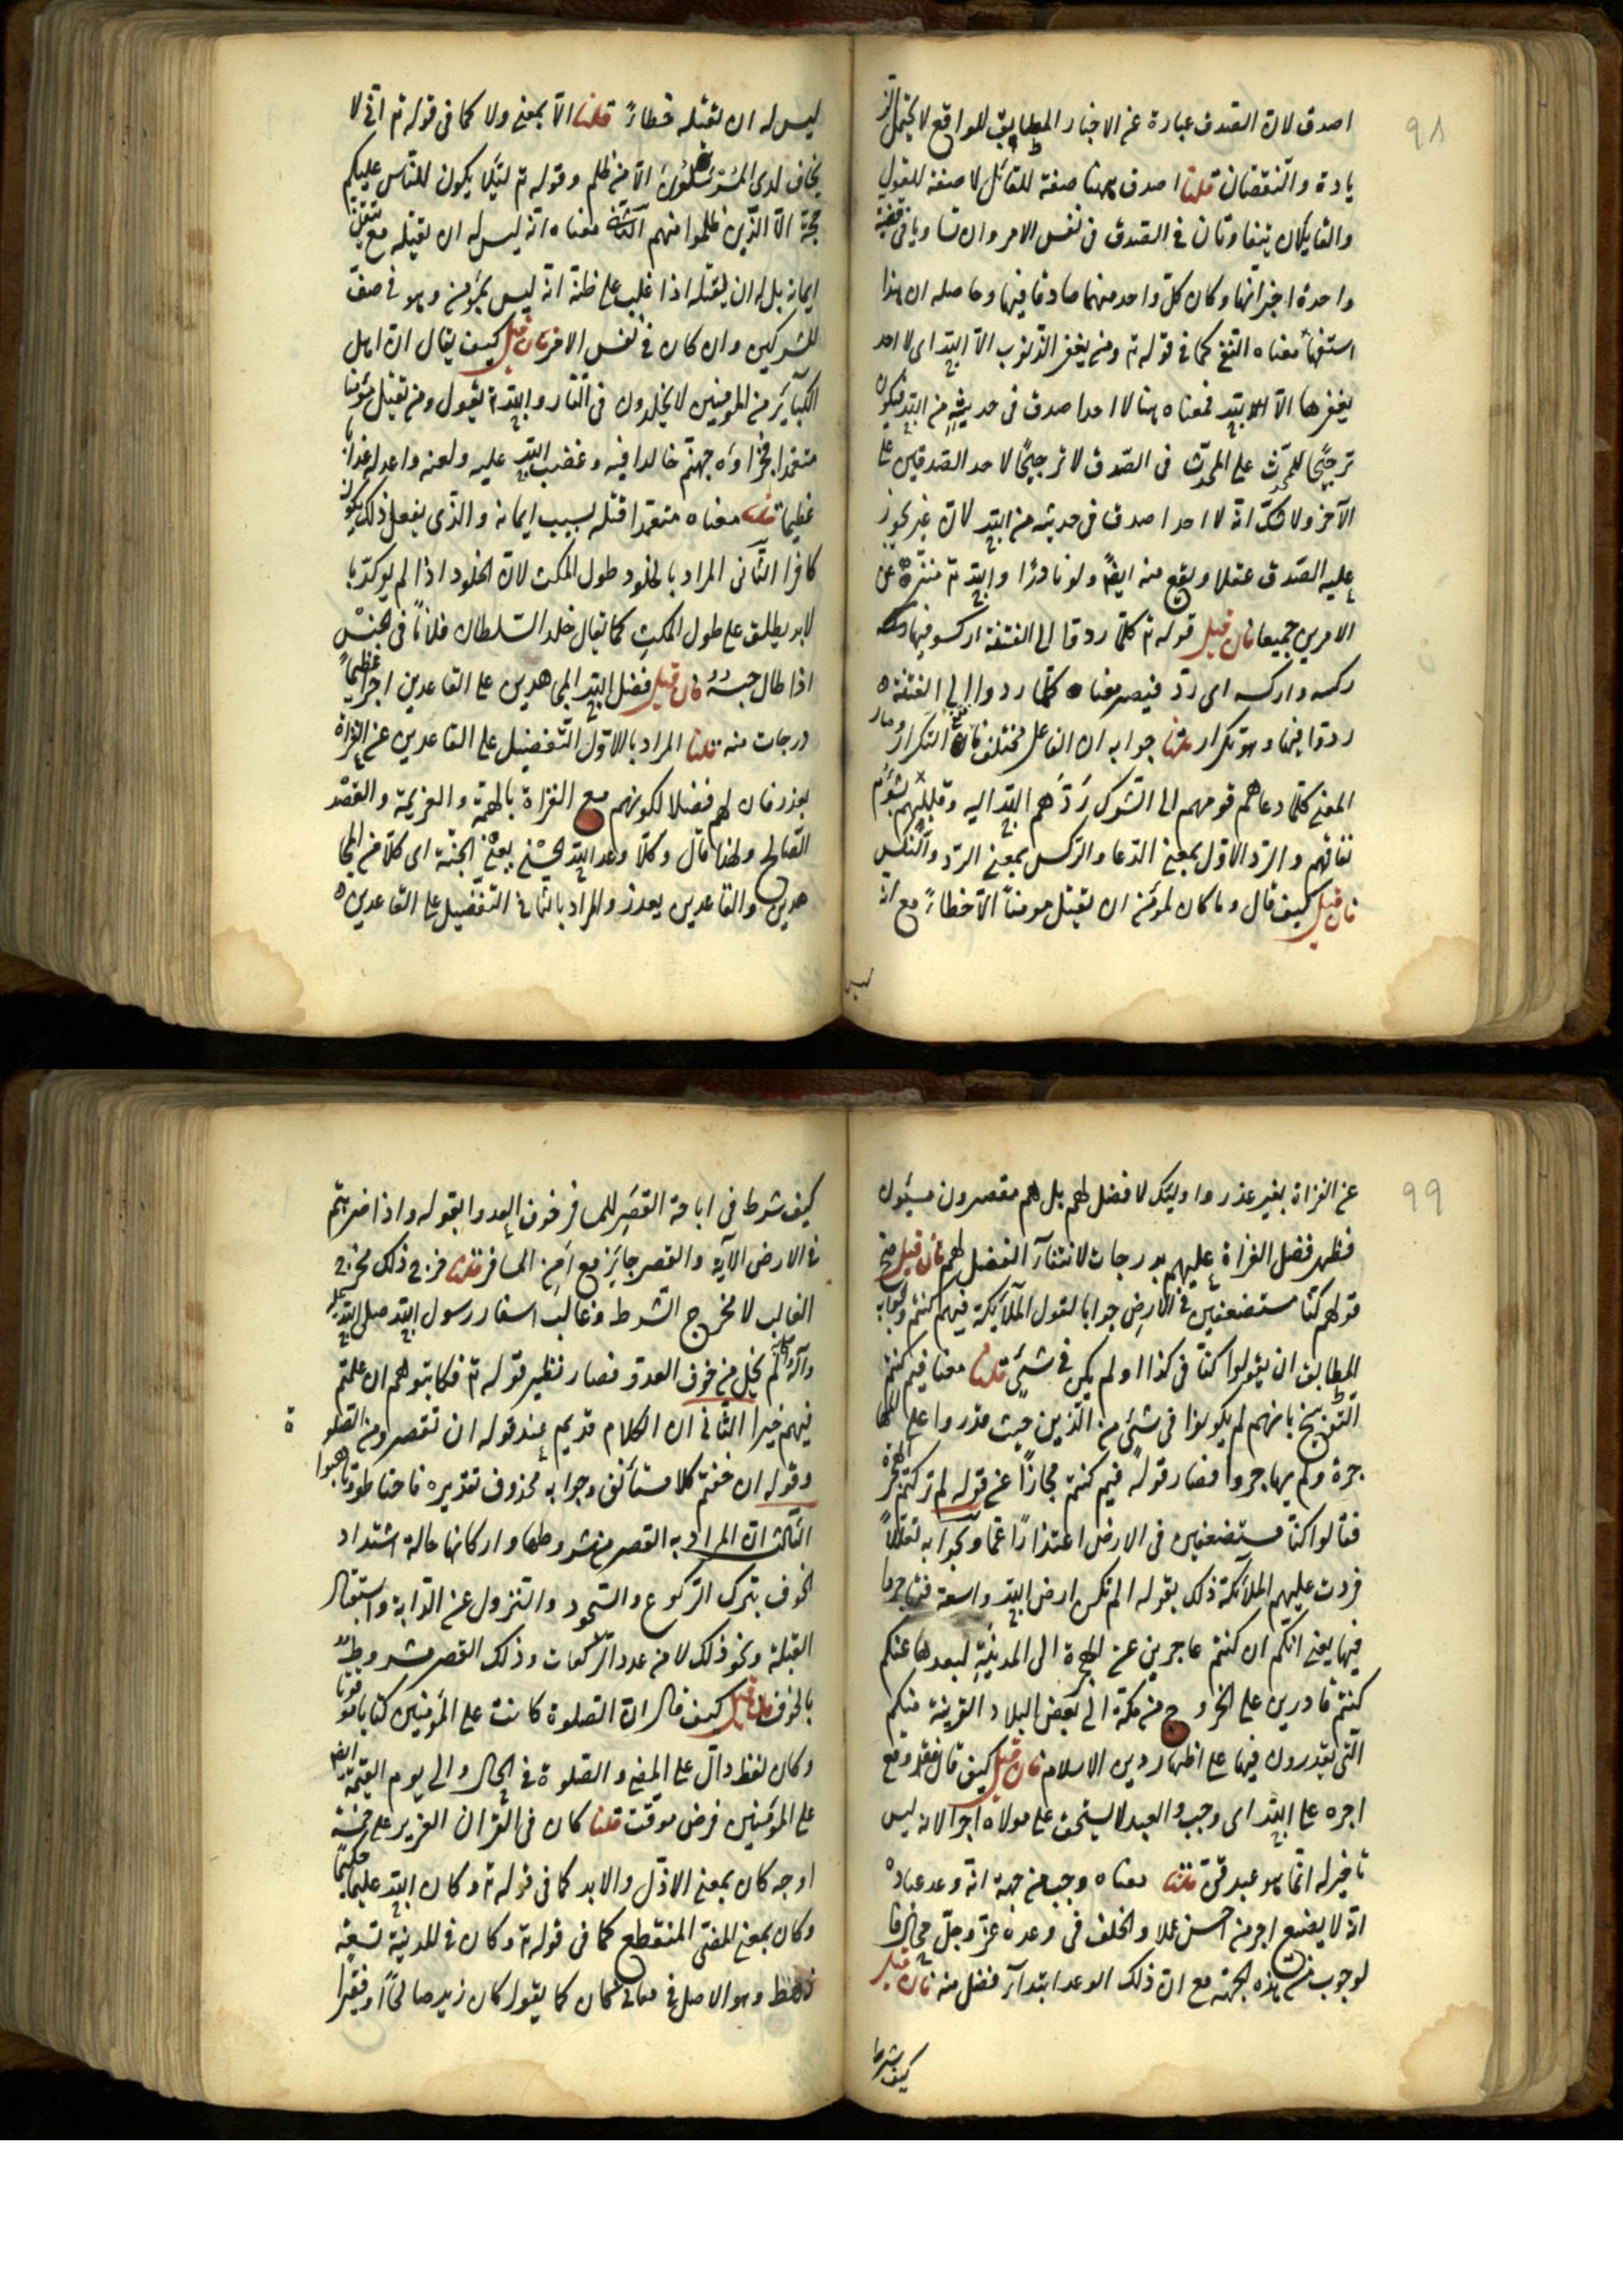 ٩٨
اصدق لان الصدق عبارة عن الاخبار المطابق للواقع لا يحتمل الز
يادة والنقصان قلنا اصدق ههنا صفة للقائل لا صفة للقول
والقايلان يتفاوتان فى الصدق فى نفس الامر وان تساويا فى قضية
واحدة اخبرا بها وكان كل واحد منهما صادقا فيها وحاصله ان هذا
استفهام معناه النفى كما فى قوله تع ومن يغفر الذنوب الا الله اى لا احد
يغفرها الا الله فمعناه هنا لا احد اصدق فى حديثه من الله فيكون
ترجيحا للمحدث على المحدث فى الصدق لا ترجيحا لاحد الصدقين على
الآخر ولا شك انه لا احد اصدق فى حديثه من الله لان غيره يجوز
عليه الصدق عقلا ويقع منه ايضا ولو نادرا والله تع منزه عن
الامرين جميعا فان قيل قوله تع كلما ردوا الى الفتنة اركسوا فيها
ركسه واركسه اى رد فيصير معناه كلما ردوا الى الفتنة
ردوا فيها وهو تكرار قلنا جوابه ان الفاعل مختلف فانتفى التكرار وصار
المعنى كلما دعاهم قومهم الى الشرك ردهم الله اليه وقلبهم بشؤم
نفاقهم والرد الاول بمعنى الدعا والركس بمعنى الرد والنكس
فان قيل كيف قال وما كان لمؤمن ان يقتل مومنا الا خطاء مع انه
ليس
ليس له ان يقتله خطاء قلنا الا بمعنى ولا كما فى قوله تع انى لا
يخاف لدى المرسلون الا من ظلم وقوله تع لئلا يكون للناس عليكم
حجة الا الذين ظلموا منهم الثانى معناه انه ليس له ان يقتله مع تيقن
ايمانه بل له ان يقتله اذا غلب على ظنه انه ليس بمؤمن وهو فى صف
المشركين وان كان فى نفس الامر فان قيل كيف يقال ان اهل
الكبآئر من المومنين لا يخلدون فى النار والله تع يقول ومن يقتل مؤمنا
متعمدا فجزاؤه جهنم خالدا فيه وغضب الله عليه ولعنه واعد له عذابا
عظيما قلنا معناه متعمدا قتله بسبب ايمانه والذى يفعل ذلك يكون
كافرا الثانى المراد بالخلود طول المكث لان الخلود اذا لم يوكد با
لابد يطلق على طول المكث كما يقال خلد السلطان فلانا فى الحبس
اذا طال حبسه فان قيل فضل الله المجاهدين على القاعدين اجرا عظيما
درجات منه قلنا المراد بالاول التفضيل على القاعدين عن الغزاة
بعذر فان لهم فضلا لكونهم مع الغزاة بالهمة والعزيمة والقصد
الصالح ولهذا قال وكلا وعد الله الحسنى يعنى الجنة اى كلا من المجا
هدين والقاعدين بعذر والمراد بالثانى التفضيل على القاعدين
٩٩
عن الغزاة بغير عذر واوليئك لا فضل لهم بل هم مقصرون مسيئون
فظهر فضل الغزاة عليهم بدرجات لانتفآء الفضل لهم فان قيل صح
قولهم كنا مستضعفين فى الارض جوابا لقول الملآئكة فيهم كنتم والجواب
المطابق ان يقولوا كنا فى كذا او لم يكن فى شئ قلنا معنا فيم كنتم
التوبيخ بانهم لم يكونوا فى شئ من الدين حيث قدروا على المها
جرة ولم يهاجروا فصار قوله فيم كنتم مجازا عن قوله لم تركتم الهجرة
فقالوا كنا مستضعفين فى الارض اعتذارا عما وبخوا به تعللا
فردت عليهم الملائكة ذلك بقوله الم تكن ارض الله واسعة فتهاجروا
فيها يعنى انكم ان كنتم عاجزين عن الهجرة الى المدينة لبعدها عنكم
كنتم قادرين على الخروج من مكة الى بعض البلاد القريبة منكم
التى تقدرون فيها على اظهار دين الاسلام فان قيل كيف قال فقد وقع
اجره على الله اى وجب والعبد لا يستحق على مولاه اجرا لانه ليس
باخير له انما هو عبد قن قلنا معناه وجب من جهة انه وعد عباده
انه لا يضيع اجر من احسن عملا والخلف فى وعده عز وجل محال فا
لوجوب من هذه الجهة مع ان ذلك الوعد ابتدآء فضل منه فان قيل
كيف شرط
كيف شرط فى اباحة القصر للمسافر خوف العدو بقوله واذا ضربتم
فى الارض الآية والقصر جايز مع امن المسافر قلنا خرج ذلك مخرج
الغالب لا مخرج الشرط وغالب اسفار رسول الله صلى الله عليه
وآله لم يخل من خوف العدو فصار نظير قوله تع فكاتبوهم ان علمتم
فيهم خيرا الثانى ان الكلام قد يم عند قوله ان تقصروا من الصلو
ة
وقوله ان خفتم كلام مستأنف وجوابه محذوف تقديره فاحتاطوا وتاهبوا
الثالث ان المراد به القصر من شروطها واركانها حالة اشتداد
الخوف بترك الركوع والسجود والنزول عن الدابة واستقبال
القبلة ونحو ذلك لا من عدد الركعات وذلك القصر مشروط
بالخوف فان قيل كيف قال ان الصلوة كانت على المؤمنين كتابا موقوتا
وكان لفظ دال على المضى والصلوة فى الحال والى يوم القيمة ايض
على المؤمنين فرض موقت قلنا كان فى القران العزيز على خمسة
اوجه كان بمعنى الازل والابد كما فى قوله تع وكان الله عليما حكيما
وكان بمعنى المضى المنقطع كما فى قوله تع وكان فى المدينة تسعة
رهط وهو الاصل فى معانى كان كما يقول كان زيد صالحا او فقيرا